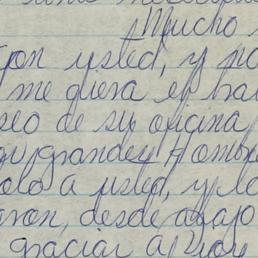 Mucho
con usted, y no
me diera el
seo de su oficina
grandes Hombre
olo a usted, y lo
aron, desde abajo
gracias a Dios